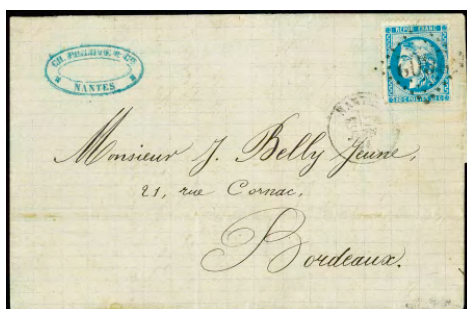 NANTES
REPUB. FRANC.
NANTES
Monsieur J. Belly Jeune,
21, rue Cornac,
Bordeaux.